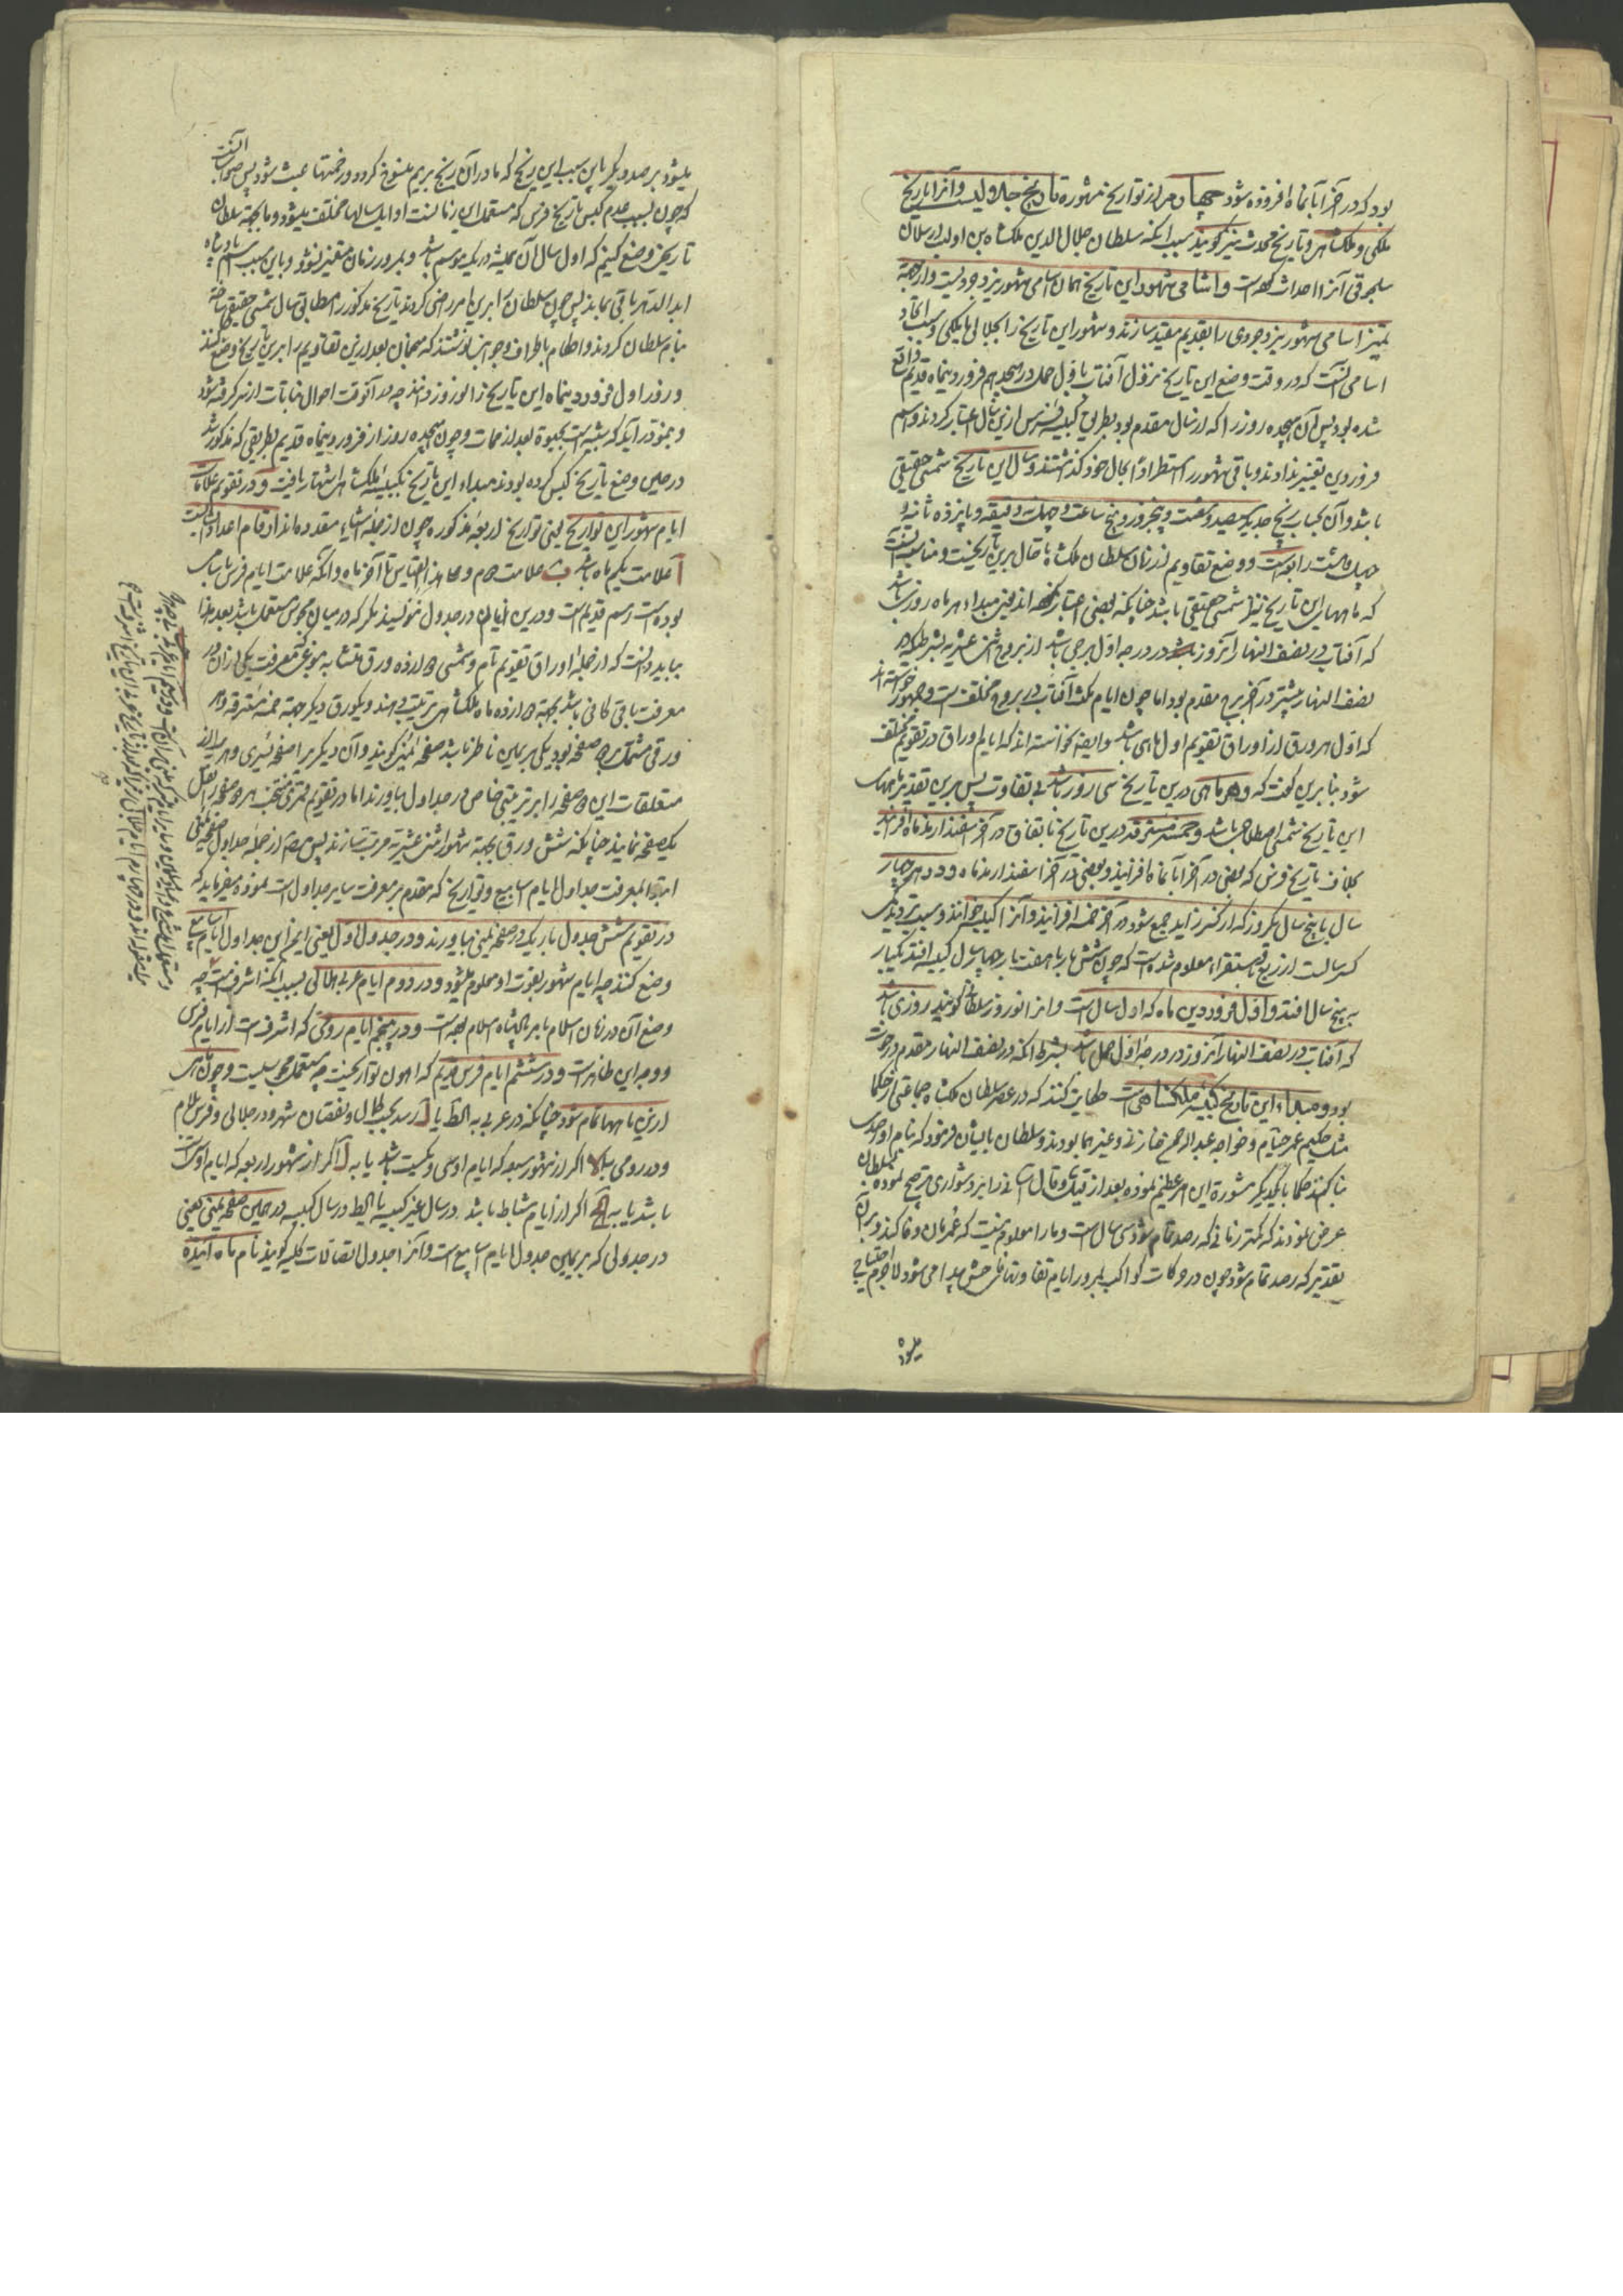 بود که در آخر آبانماه افزوده شود چهارم از تواریخ مشهوره تاریخ جلالیست و آنرا تاریخ
ملکی و ملکشاهی و تاریخ محدث نیز گویند بسبب آنکه سلطان جلال الدین ملکشاه بن الب ارسلان
سلجوقی آنرا احداث کرده است و اسامی شهور این تاریخ همان اسامی شهور یزدجردیست و از جهة
تمییز اسامی شهور یزدجردی را بقدیم مقید سازند و شهور این تاریخ را بجلالی یا ملکی و سبب اتحاد
اسامی آنست که در وقت وضع این تاریخ نزول آفتاب باول حمل در هیجدهم فروردینماه قدیم واقع
شده بود پس آن هیجده روز را که از سال مقدم بود بطریق کبیسه فرس ازین سال اعتبار کردند و اسم
فروردین تغییر ندادند و باقی شهور را استطرادا بحال خود گذاشتند و سال این تاریخ شمسی حقیقی
باشد و آن بحساب زیج جدید سیصد و شصت و پنجروز و پنج ساعت و چهل و نه دقیقه و پانزده ثانیه و
چهل و هشت رابعه است و وضع تقاویم از زمان سلطان ملکشاه تا حال برین تاریخست و مناسب آنست
که ماههای این تاریخ نیز شمسی حقیقی باشد چنانکه بعضی اعتبار کرده اند یعنی مبداء هر ماه روزی باشد
که آفتاب در نصف النهار آنروز در درجه اول برجی باشد از بروج اثنی عشریه بشرط آنکه در
نصف النهار پیشتر در آخر برج مقدم بود اما چون ایام مکث آفتاب در بروج مختلفست و جمهور خواسته اند
که اول هر ورق از اوراق تقویم اول ماهی باشد و ایضا نخواسته اند که ایام اوراق در تقویم مختلف
شود بنابرین گفت که و هر ماهی درین تاریخ سی روز باشد بی تفاوت پس برین تقدیر ماههای
این تاریخ شمسی اصطلاحی باشد و خمسه مسترقه درین تاریخ باتفاق در آخر اسفندارمذماه افزایند
بخلاف تاریخ فرس که بعضی در آخر آبانماه افزایند و بعضی در آخر اسفندارمذماه و در هر چهار
سال یا پنج سال یکروز که از کسر زاید جمع شود در آخر خمسه افزایند و آنرا کبیسه خوانند و سبب تردید
کسر سالست از ربع و باستقراء معلوم شده است که چون شش بار یا هفت بار بچهار سال کبیسه افتد یکبار
به پنج سال افتد و اول فروردین ماه که اول سالست و آنرا نوروز سلطانی گویند روزی باشد
که آفتاب در نصف النهار آنروز در درجه اول حمل باشد بشرط آنکه در نصف النهار مقدم در حوت
بود و مبداء این تاریخ کبیسه ملکشاهی است حکایت کنند که در عصر سلطان ملکشاه جماعتی از حکما
مثل حکیم عمر خیام و خواجه عبدالرحمن خازنی و غیرهما بودند و سلطان بایشان فرمود که بنام او رصدی
بنا کنند حکما با یکدیگر مشورة این امر عظیم نموده بعد از قیل و قال آسانی را بر دشواری ترجیح نموده بسلطان
عرض نمودند که کمتر زمانی که رصد تمام شود سی سال است و ما را معلوم نیست که عمر مان وفا کند و بر آن
تقدیر که رصد تمام شود چون در حرکات کواکب بمرور ایام تفاوتهای فاحش پیدا می شود لاجرم احتیاج
میشود
میشود برصد دیگر باین سبب این رنج که ما در آن رنج بریم منسوخ گردد و زحمتها عبث شود پس صواب آنست
که چون بسبب عدم کبس تاریخ فرس که مستعمل این زمانست اوایل سالها مختلف میشود و ما بجهة سلطان
تاریخی وضع کنیم که اول سال آن همیشه در یک موسم باشد و بمرور زمان متغیر نشود و باین سبب اسم پادشاه
ابد الدهر باقی بماند پس چون سلطان را برین امر راضی کردند تاریخ مذکور را مطابق سال شمسی حقیقی ساخته
بنام سلطان کردند و احکام باطراف و جوانب نوشتند که منجمان بعد ازین تقاویم را برین تاریخ وضع کنند
و روز اول فروردینماه این تاریخ را نوروز خوانند چه در آنوقت احوال نباتات از سر گرفته شود
و بمنزله آنکه شبیه است بحیوة بعد از ممات و چون هیجده روز از فروردینماه قدیم بطریقی که مذکور شد
در حین وضع تاریخ کبس کرده بودند مبداء این تاریخ بکبیسه ملکشاهی اشتهار یافت و در تقویم علامات
ایام شهور این تواریخ یعنی تواریخ اربعه مذکوره چون از جمله اشیاء معدوده اند ارقام اعداد است
آ علامت یکم ماه باشد ب علامت دوم و علی هذا القیاس تا آخر ماه و آنکه علامت ایام فرس باسامی
بوده است رسم قدیم است و درین ایام آن در جدول ننویسند مگر که در میان مجوس مستعمل باشد بعد هذا
بباید دانست که از جمله اوراق تقویم تام و شمسی دوازده ورق متشابه موضوعست که معرفت یکی از آن در
معرفت باقی کافی باشد بجهة دوازده ماه ملکشاهی ترتیب دهند و یکورق دیگر جهة خمسه مسترقه و هر
ورقی مشتمل بر دو صفحه بود یکی بر یمین ناظر باشد صفحه یمنی گویند و آن دیگر بر یسار صفحه یسری و هر یک از
متعلقات این دو صفحه را بر ترتیبی خاص در جداول بیاورند اما در تقویم قمری منتخب هر دو صفحه را نقل
یکصفحه نمایند چنانکه شش ورق بجهة شهور اثنی عشریه مرتب سازند پس مصنف از جمله جداول صفحه یمنی
ابتدا بمعرفت جداول ایام اسابیع و تواریخ که مقدم بر معرفت سایر جداول است نموده میفرماید که
در تقویم شش جدول باریک در صفحه یمنی بیاورند و در جدول اول یعنی ایمن این جداول ایام اسابیع
وضع کنند چه ایام شهور بقوت او معلوم میشود و در دوم ایام عربی هلالی بسبب آنکه اشرفست چه
وضع آن در زمان اسلام بامر پادشاه اسلام بوده است و در پنجم ایام رومی که اشرفست از ایام فرس
و وجه این ظاهر است و در ششم ایام فرس قدیم که اهون تواریخست چه مستعمل مجوسیست و چون ماهی
ازین ماهها تمام شود چنانکه در عربی به الط یا ل رسد بحسب کمال و نقصان شهور و در جلالی و فرس به ل
و در رومی به لا اگر از شهور سبعه که ایام او سی و یکست باشد یا به ل اگر از شهور اربعه که ایام او سی است
باشد یا به کح اگر از ایام شباط باشد در سال غیر کبیسه یا الط در سال کبیسه در همین صفحه یمنی یعنی
در جدولی که بر یمین جدول ایام اسابیع است و آنرا جدول اتصالات کلیه گویند نام ماه آینده